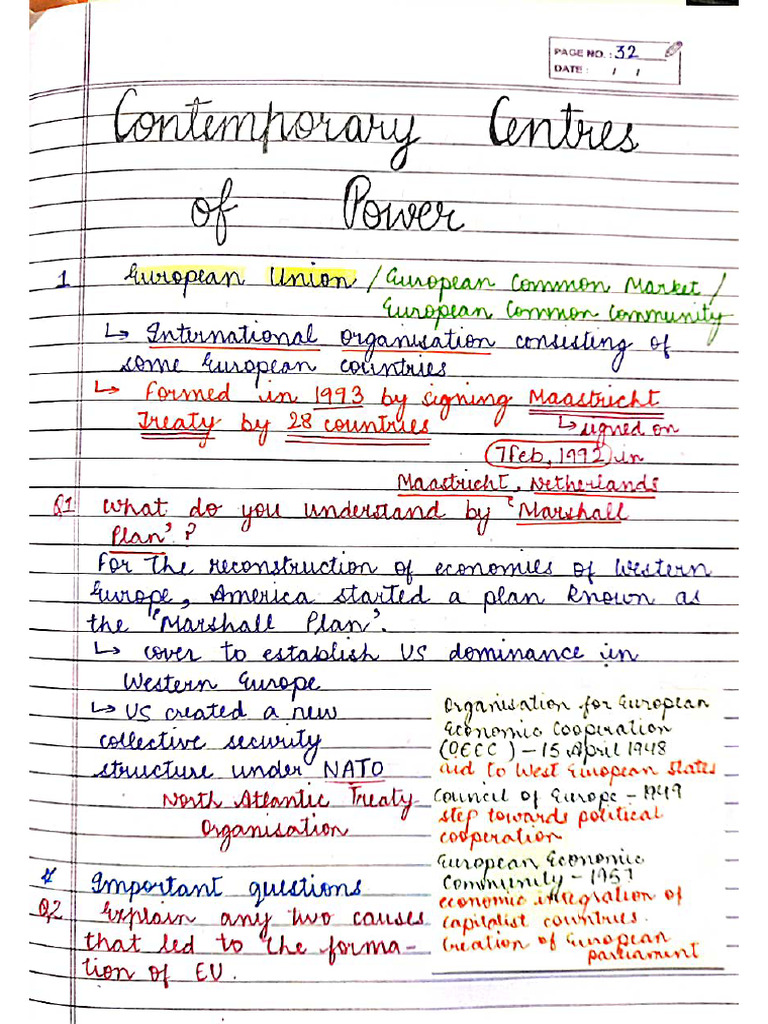 PAGE NO.: 32
DATE: / /
Contemporary Centres
of Power
1 European Union / European Common Market /
European Common Community
↳ International organisation consisting of
some European countries
↳ Formed in 1993 by signing Maastricht
Treaty by 28 countries
↳ signed on
7 Feb, 1992 in
Maastricht, Netherlands
Q1 What do you understand by 'Marshall
Plan'?
For the reconstruction of economies of Western
Europe, America started a plan known as
the 'Marshall Plan'.
↳ cover to establish US dominance in
Western Europe
↳ US created a new
collective security
structure under NATO
North Atlantic Treaty
Organisation
Organisation for European
Economic Cooperation
(OEEC) - 15 April 1948
aid to West European states
Council of Europe - 1949
step towards political
cooperation
European Economic
Community - 1957
economic integration of
capitalist countries.
Creation of European
parliament
* Important questions
Q2 Explain any two causes
that led to the forma-
tion of EU.